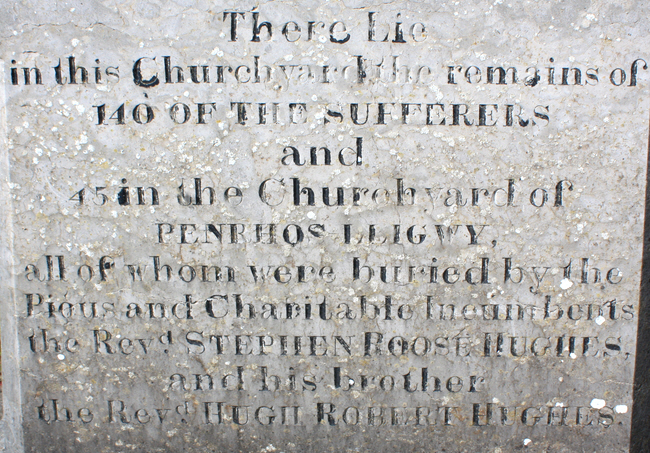 There Lie
in this Churchyard the remains of
140 OF THE SUFFERERS
and
45 in the Churchyard of
PENRHOS LLIGWY,
all of whom were buried by the
Pious and Charitable Incumbents
the Revd. STEPHEN ROOSE HUGHES,
and his brother
the Revd. HUGH ROBERT HUGHES.